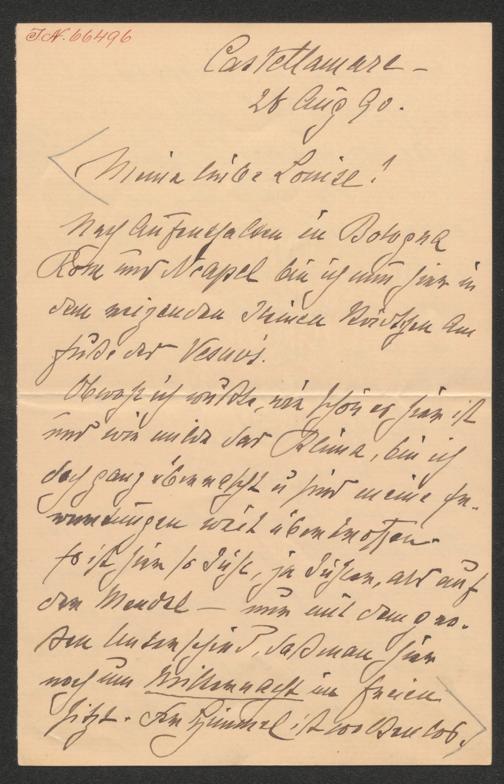 J.N. 66496
Castellamare –
28 Aug 90.
Meine liebe Louise!
Nach Aufenthalten in Bologna
Rom und Neapel bin ich nun hier in
dem reizenden kleinen Städtchen am
Fuße des Vesuvs.
Obwohl ich wußte, wie schön es hier ist
und wie milde das Klima, bin ich
doch ganz überrascht u sind meine Er-
wartungen weit übertroffen.
Es ist hier so kühl, ja kühler, als auf
der Mendel – nur mit dem gro-
ßen Unterschied, daß man hier
noch um Mitternacht im Freien
sitzt. Der Himmel ist wolkenlos,